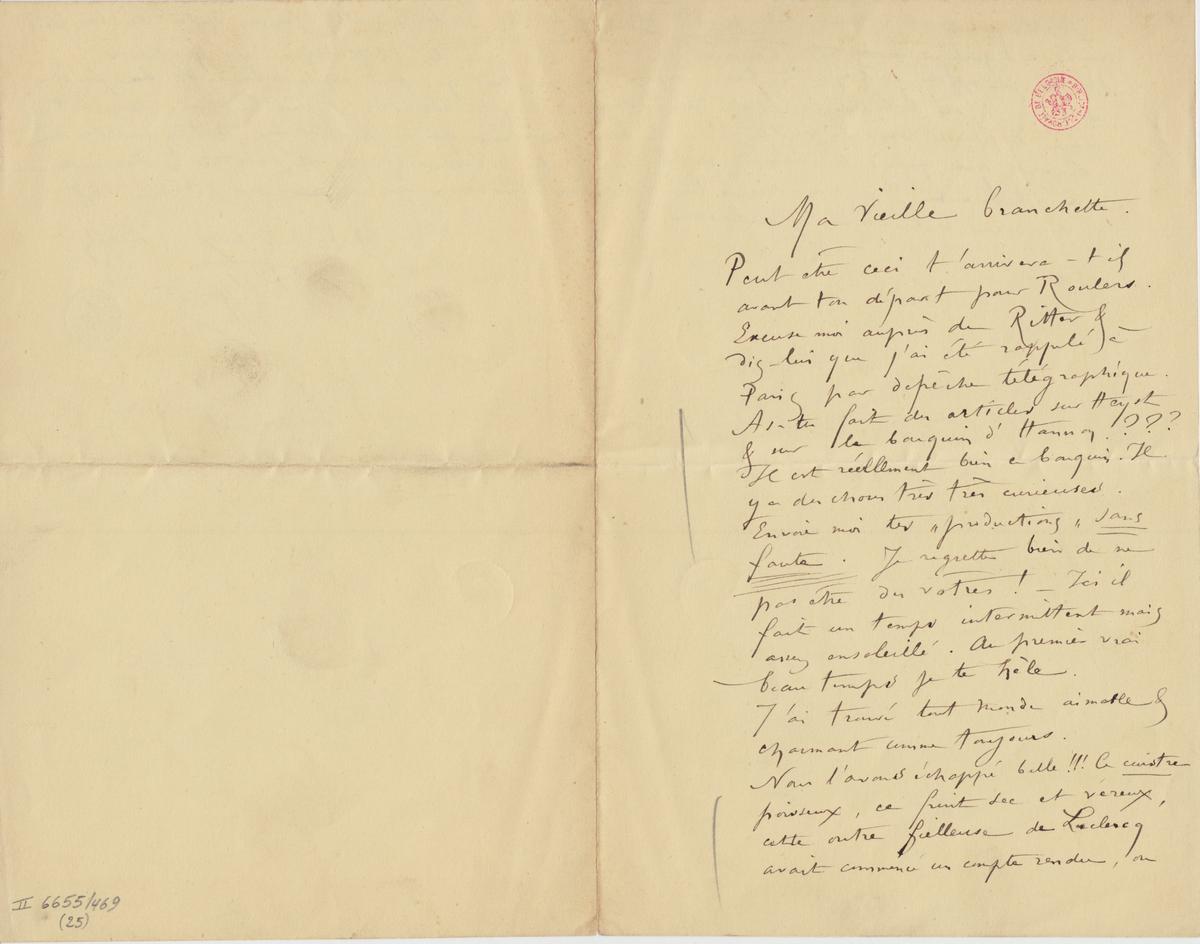 Ma vieille branchette.
Peut être ceci t'arrivera-t-il
avant ton départ pour Roulers.
Excuse moi auprès de Ritter &
dis-lui que j'ai été rappelé à
Paris par depêche télégraphique.
As-tu fait des articles sur Heyst
& sur le bouquin d'Hannon ???
Il est réellement bien ce bouquin. Il
y a des choses très très curieuses.
Envoie moi tes „productions„ sans
faute. Je regrette bien de ne
pas être des vôtres ! – Ici il
fait un temps intermittent mais
assez ensoleillé. Au premier vrai
beau temps je te hèle.
J'ai trouvé tout monde aimable &
charmant comme toujours.
Nous l'avons échappé belle !!! Ce cuistre
poisseux, ce fruit sec et véreux,
cette outre fielleuse de Leclercq
avait commencé un compte rendu, ou
II 6655/469
(25)